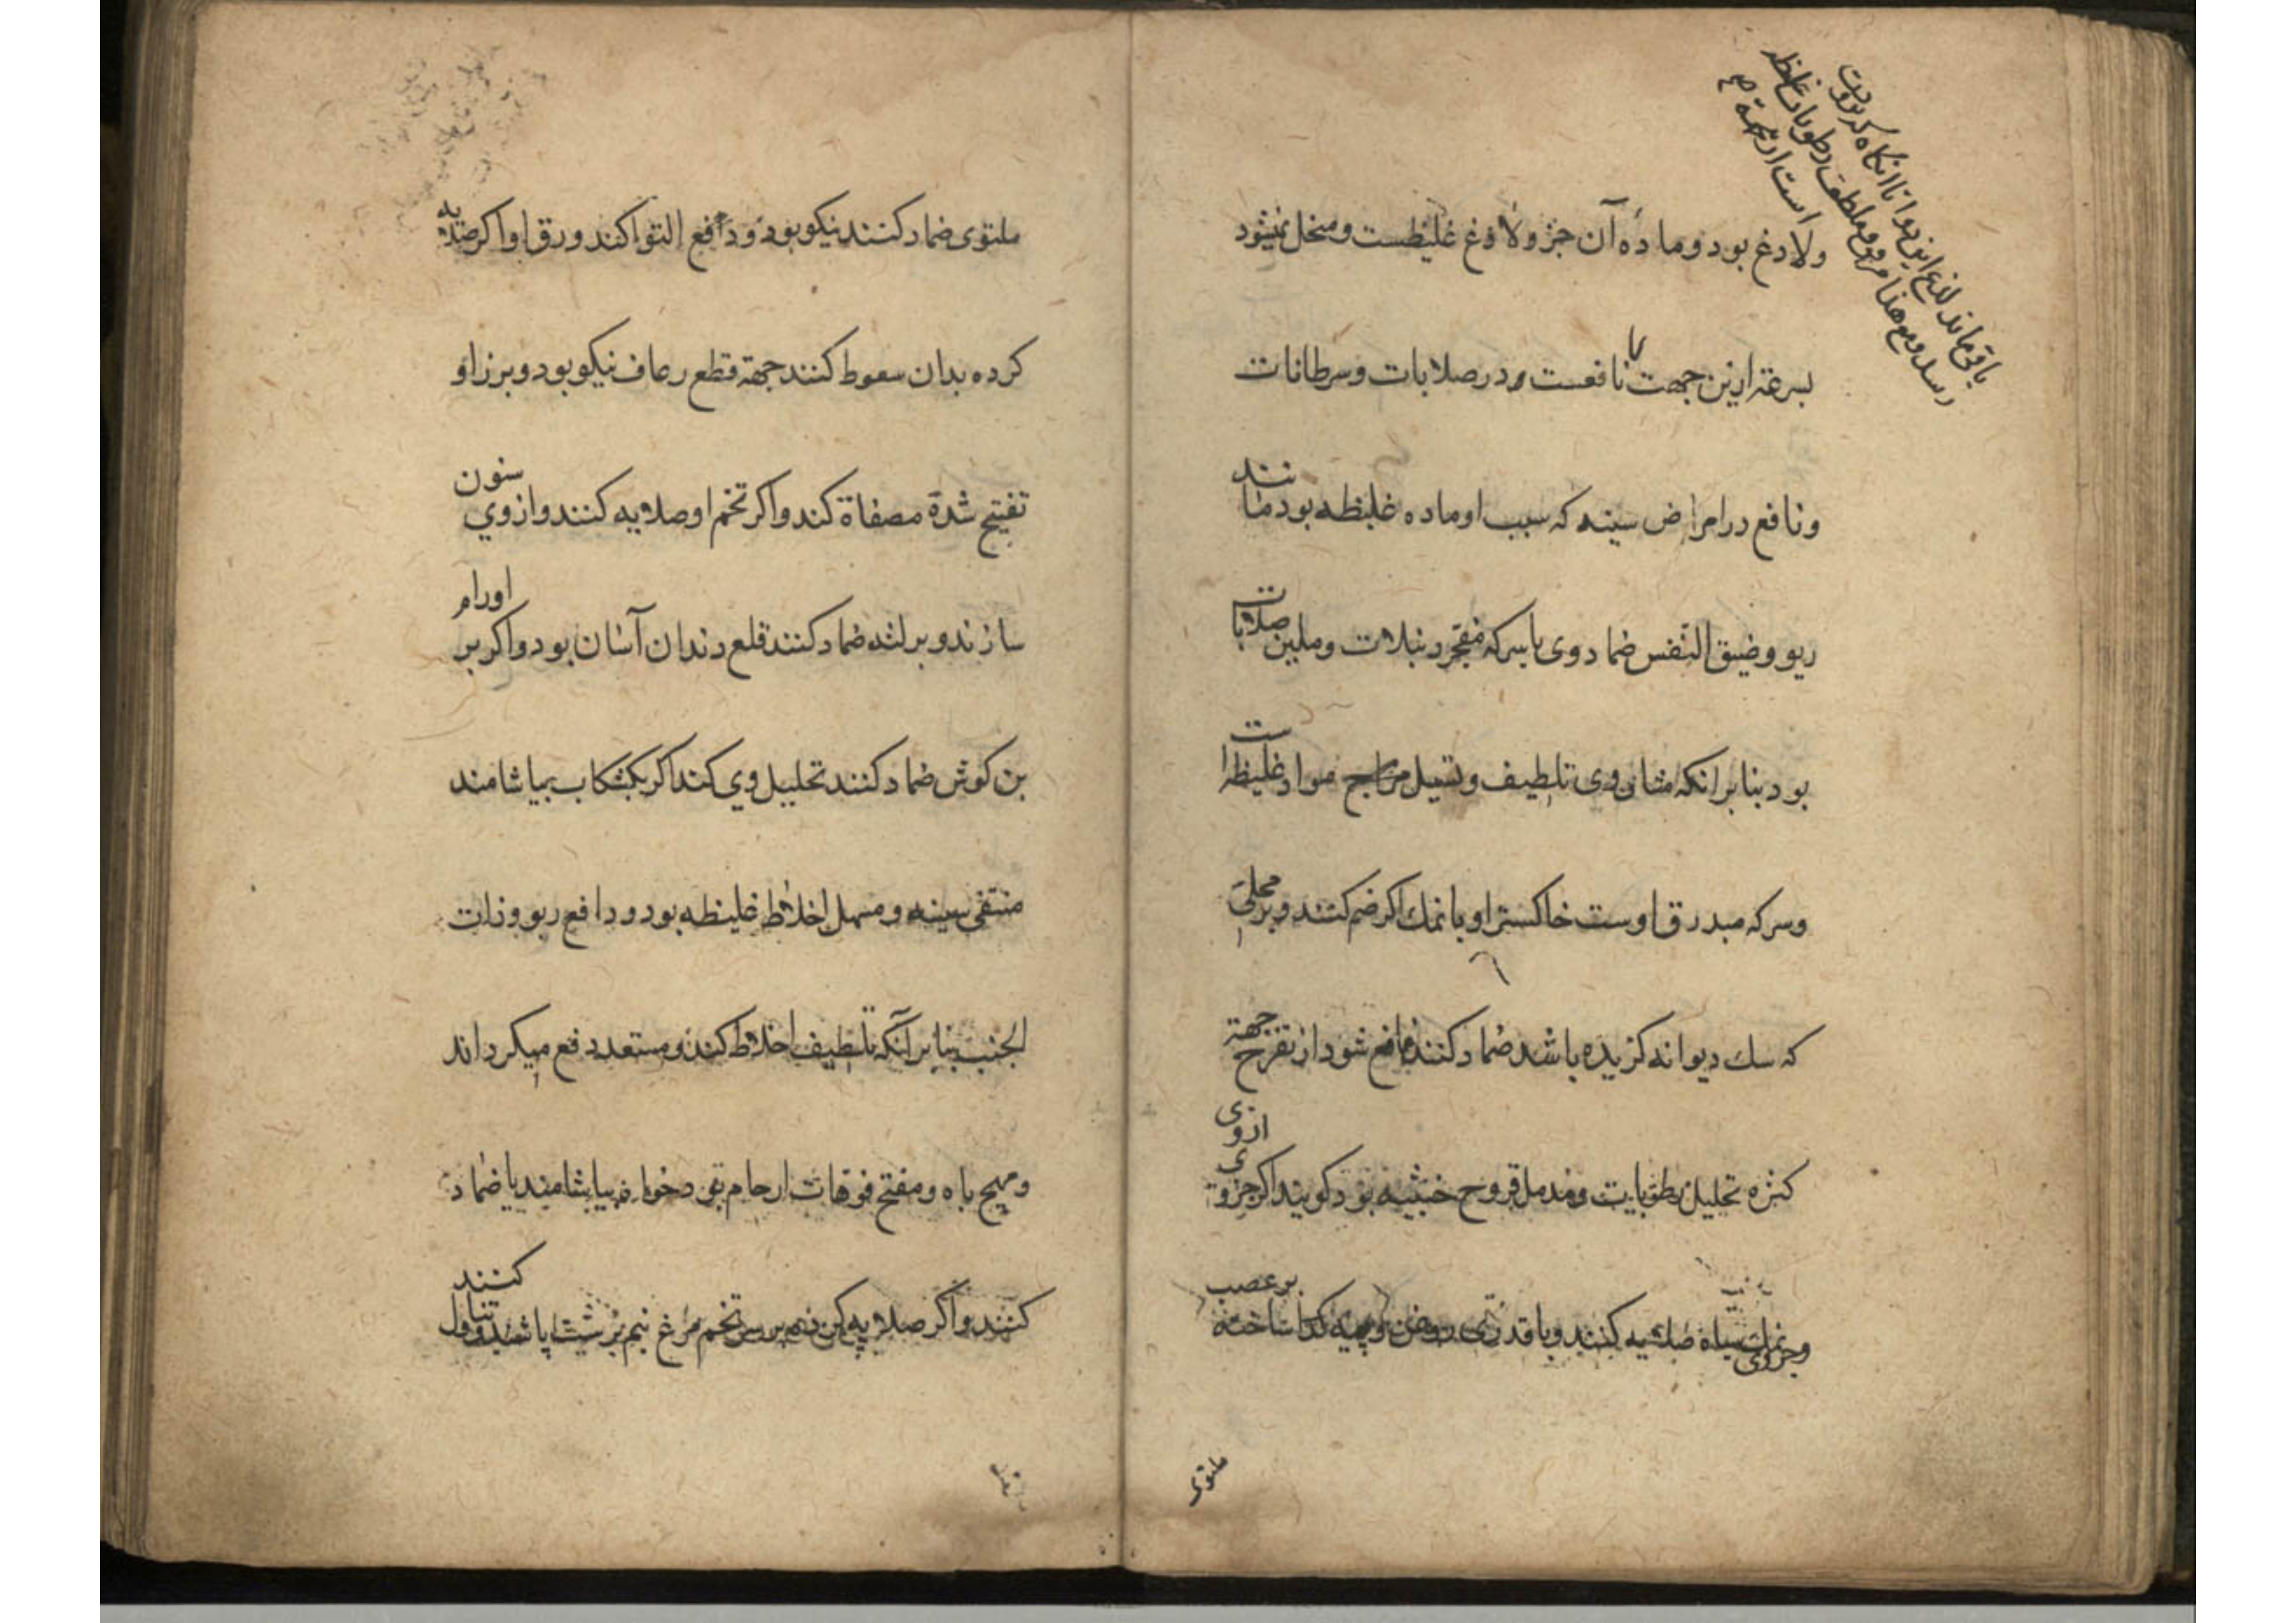 باقی ماند لذع این دوا تا آنکاه که برودت
رسد ومع هذا مرقق وملطف رطوبات غلظه
است از تتمة
ولاذغ بود وماده آن جز ولاذغ غلیظست ومنحل نمیشود
بسرعة ازین جهت نافعست در صلابات وسرطانات
ونافع در امراض سینه که سبب او ماده غلیظه بود مانند
ربو وضیق النفس ضماد وی با سرکه مفجر دنبلات وملین صلابات
بود بنابر انکه مشان وی تلطیف وتسیل مواد غلیظه است
وسرکه مبدرق اوست خاکستر او با نمک اکر ضم کنند وبر محلی
که سک دیوانه کزیده باشد ضماد کنند نافع شود از تقرح جهة
کثره تحلیل رطوبات ومدمل قروح خبیثه بود کویند اکر جزوی ازوی
وجزوی نمک سیاه صلایه کنند وبا قدری روغن وپیه کداخته بر عصب
ملتوی
ملتوی ضماد کنند نیکو بود ودافع التوا کند ورق او اکر صلایه
کرده بدان سعوط کنند جهة قطع رعاف نیکو بود وبرز او
تفتیح شدۀ مصفاة کند واکر تخم او صلایه کنند وازوی سنون
سازند وبر لثه ضماد کنند قلع دندان آسان بود واکر بر اورام
بن کوش ضماد کنند تحلیل وی کند اکر بکشکاب بیاشامند
منقی سینه ومسهل اخلاط غلیظه بود ودافع ربو وذات
الجنب بنابر آنکه تلطیف اخلاط کند ومستعد دفع میکرداند
ومهیج باه ومفتح فوهات ارحام بود خواه بیاشامند یا ضماد
کنند واکر صلایه کرده بر سر تخم مرغ نیم برشت پاشند وتناول کنند